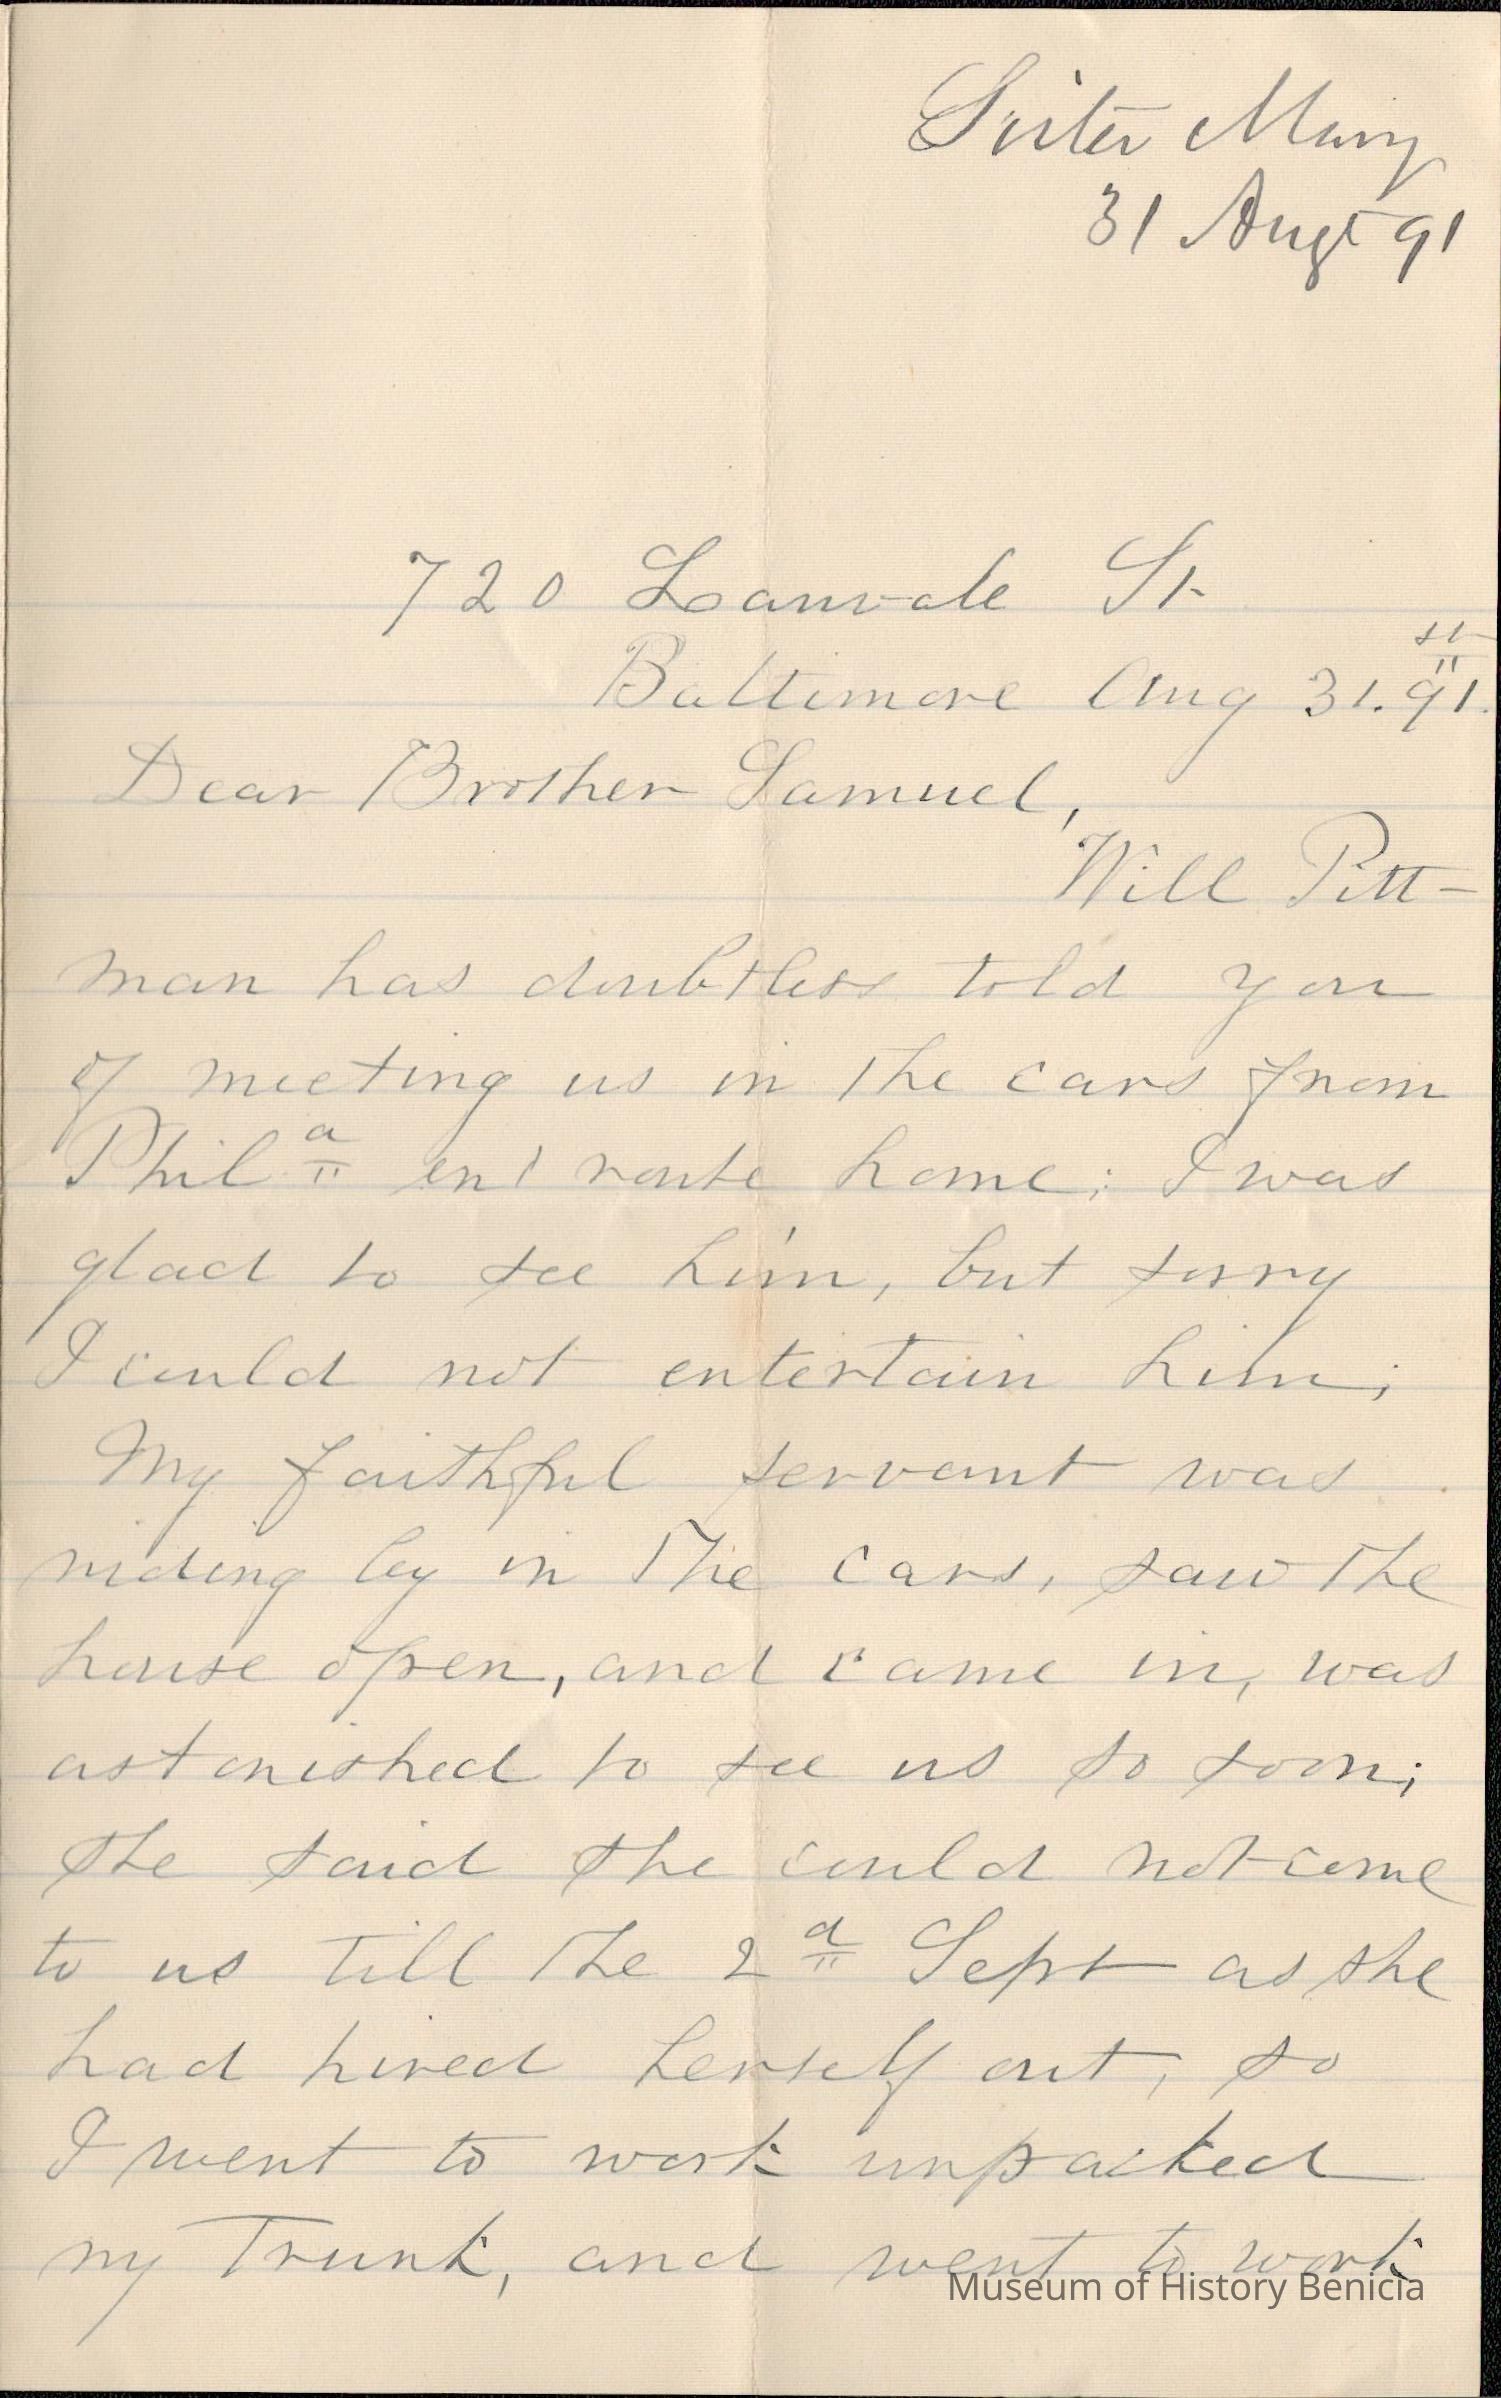 Sister Mary
31 Augt 91
720 Lanvale St
Baltimore Aug 31.st 91.
Dear Brother Samuel,
Will Pitt-
man has doubtless told you
of meeting us in the cars from
Phila en route home; I was
glad to see him, but sorry
I could not entertain him;
My faithful servant was
riding by in the cars, saw the
house open, and came in, was
astonished to see us so soon;
she said she could not come
to us till the 2d Sept as she
had hired herself out, so
I went to work unpacked
my Trunk, and went to work
Museum of History Benicia